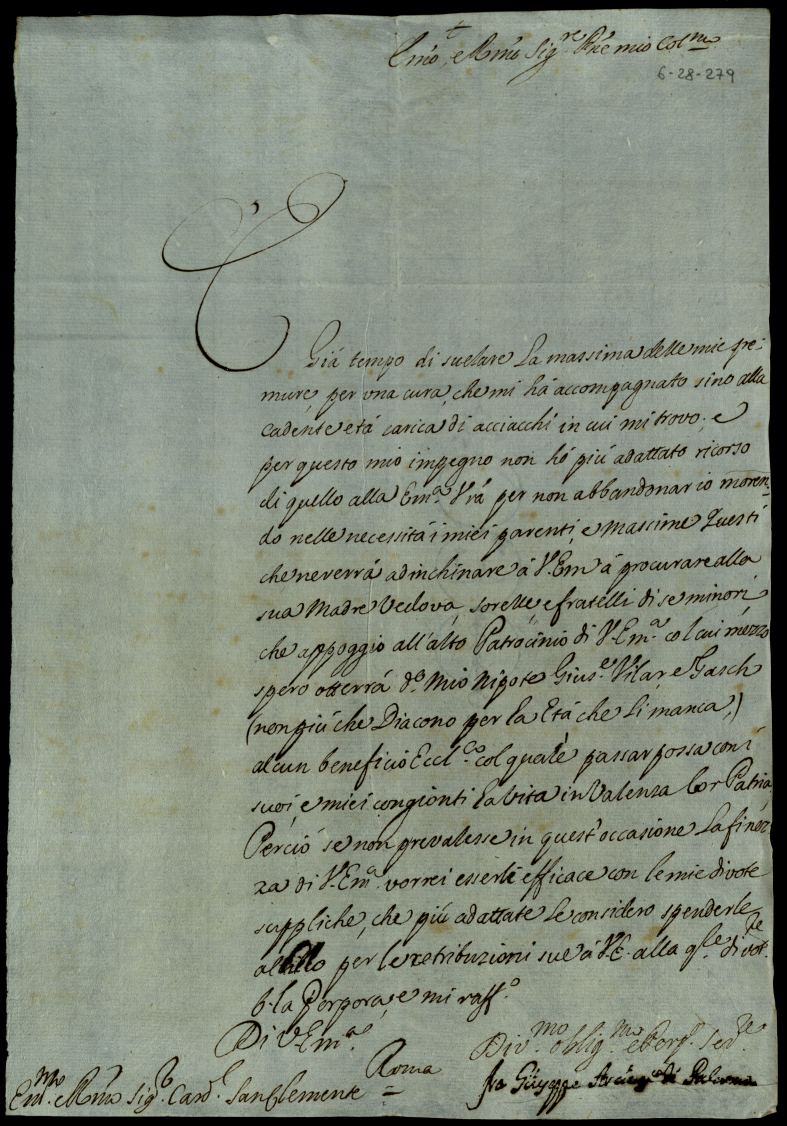 Emo, e Rmo Sig.re Pne mio Col.mo
6-28-279
È Giá tempo di suelare la massima delle mie pre-
mure per vna cura, che mi há accompagnato sino alla
cadente etá carica di acciacchi in cui mi trovo; e
per questo mio impegno non hó piú adattato ricorso
di quello alla Em.a Vrá per non abbandonar io moren-
do nelle necessitá i miei parenti, e massime questi
che ne verrá ad inchinare á V. Em á procurare alla
sua Madre Vedova, sorelle, e fratelli di se minori
che appoggio all'alto Patrocinio di V. Em.a col cui mezzo
spero otterrá d.o Mio Nipote Gius.e Vilar e Gasch
(non piú che Diacono per la Etá che li manca,)
alcun beneficio Eccl.co col quale passar possa con i
suoi, e miei congionti la vita in Valenza lor Patria,
Perció se non prevalesse in quest'occasione la finez-
za di V. Em.a vorrei esserle efficace con le mie divote
suppliche, che piú adattate le considero spenderle
per le retribuzioni sue á V. E. alla q.le divot.te
b. la Porpora, e mi raff.o
Di V. Em.a
Div.mo oblig.mo e Ser.re
Roma
fra Giuseppe di Palermo
Em.mo e Rmo Sig.r Card.l San Clemente